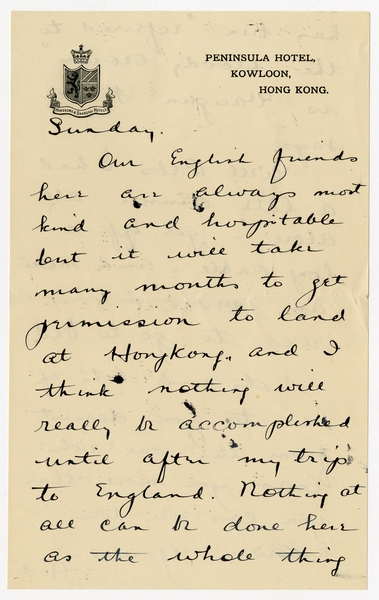 PENINSULA HOTEL,
KOWLOON,
HONG KONG.
Sunday.
Our English friends
here are always most
kind and hospitable
but it will take
many months to get
permission to land
at HongKong, and I
think nothing will
really be accomplished
until after my trip
to England. Nothing at
all can be done here
as the whole thing